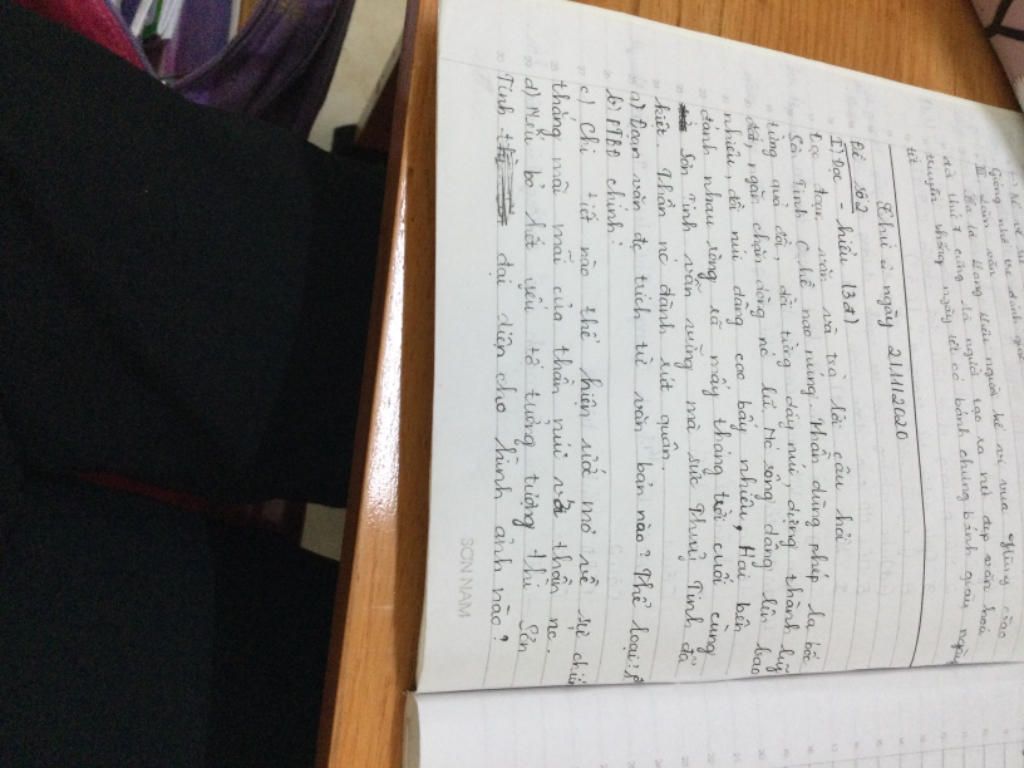 Giống như
III. Làm văn
Ba là Lang Liêu người kế vị vua Hùng nào
là người tạo ra nét đẹp văn hoá
ngày tết có bánh chưng bánh giầy ngày
truyền thống
tết
Thứ ngày 21.11.2020
Đề số 2
I) Đọc - hiểu (3đ)
Đọc đoạn văn và trả lời câu hỏi
Sơn Tinh không hề nao núng. Thần dùng phép lạ bốc
từng quả đồi, dời từng dãy núi, dựng thành luỹ
đất, ngăn chặn dòng nước lũ. Nước sông dâng lên bao
nhiêu, đồi núi dâng cao bấy nhiêu, Hai bên
đánh nhau ròng rã mấy tháng trời cuối cùng
Sơn Tinh vẫn vững mà sức Thuỷ Tinh đã
kiệt. Thần nc đành rút quân.
a) Đoạn văn đc trích từ văn bản nào? Thể loại?
b) PTBĐ chính?
c) Chi tiết nào thể hiện ước mơ về sự chiến
thắng mãi mãi của thần núi với thần nc.
d) Nếu bỏ hết yếu tố tưởng tượng thì Sơn
Tinh đại diện cho hình ảnh nào?
SƠN NAM